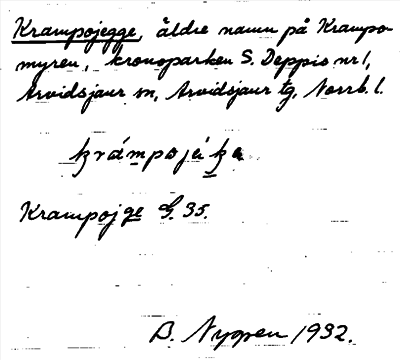 Krampojegge, äldre namn på Krampo-
myren, kronoparken S. Deppis nr 1,
Arvidsjaur sn, Arvidsjaur tg, Norrb. l.
Krampojge G. 35.
B. Nygren 1932.